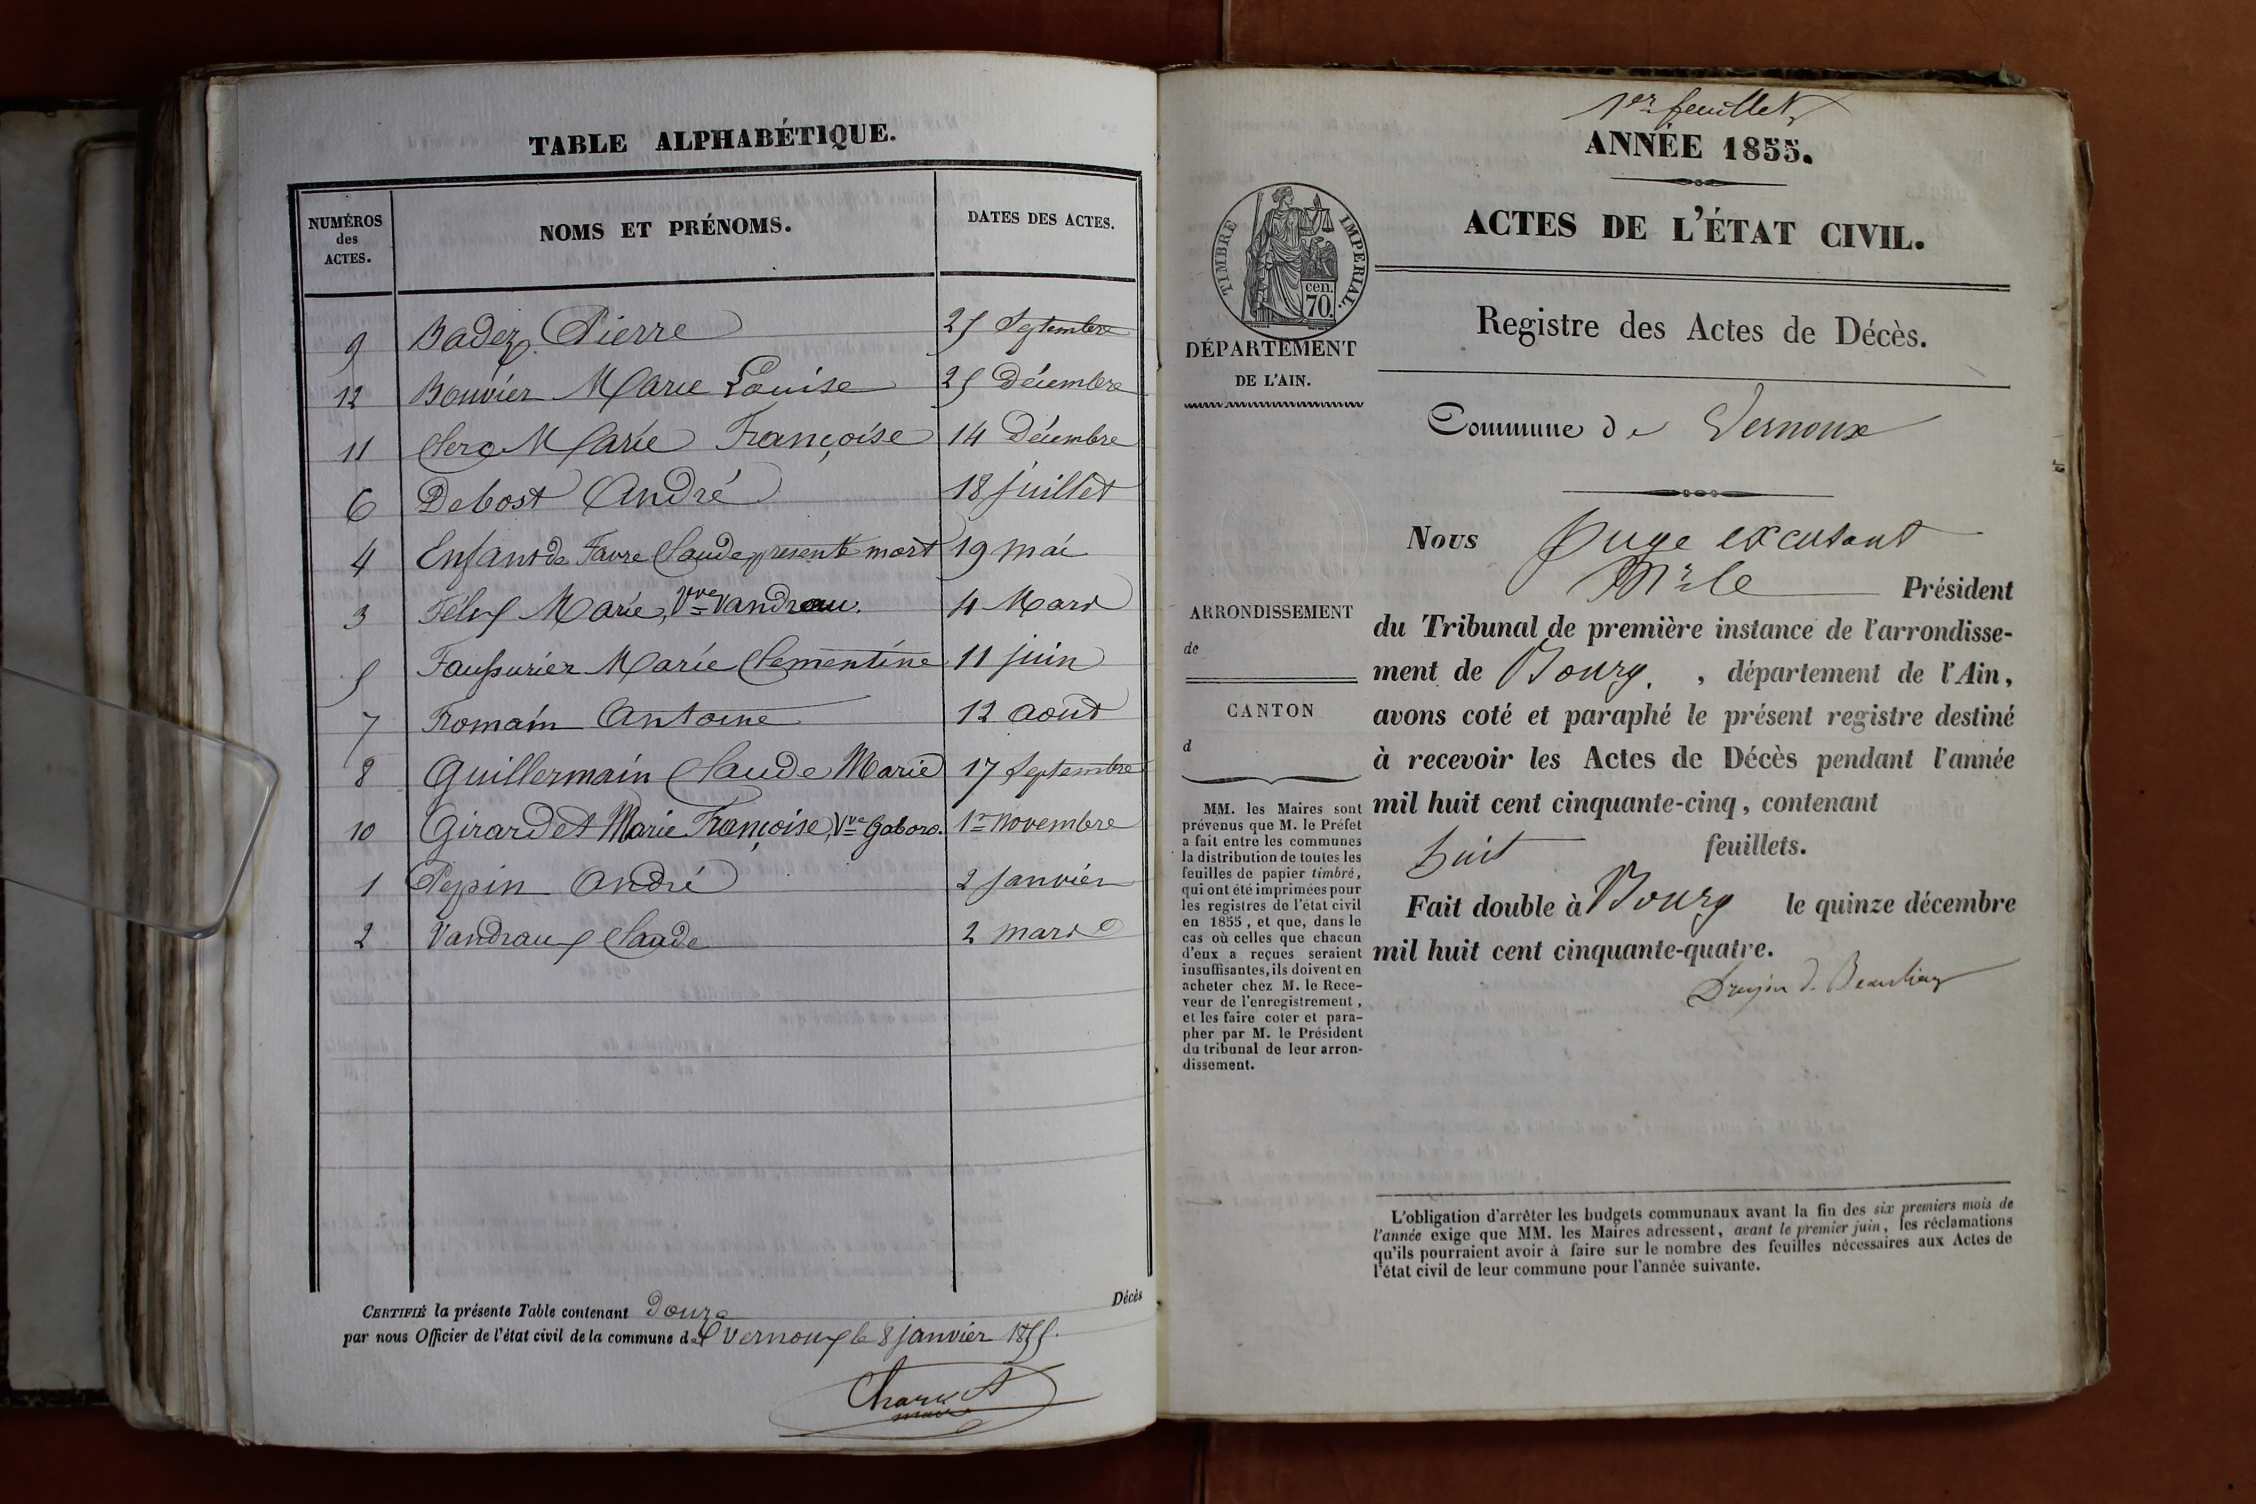 TABLE ALPHABÉTIQUE.
NUMÉROS
des
ACTES.
NOMS ET PRÉNOMS.
DATES DES ACTES.
9 Badez Pierre 25 Septembre
12 Bouvier Marie Louise 25 Décembre
11 Clerc Marie Françoise 14 Décembre
6 Debost André 18 juillet
4 Enfant de Favre Claude présenté mort 19 mai
3 Marie, Vve Vandroux. 4 Mars
5 Faussurier Marie Clementine 11 juin
7 Romain Antoine 12 aout
8 Guillermain Claude Marie 17 Septembre
10 Girardet Marie Françoise, Vve 1er novembre
1 Pepin André 2 janvier
2 Vandroux Claude 2 mars
CERTIFIÉ la présente Table contenant douze Décès
par nous Officier de l'état civil de la commune de Vernoux le 8 janvier 1855.
Charvet
maire
1er feuillet
ANNÉE 1855.
ACTES DE L'ÉTAT CIVIL.
TIMBRE IMPERIAL.
cen.
70.
DÉPARTEMENT
DE L'AIN.
Registre des Actes de Décès.
Commune de Vernoux
Nous Juge excusant
Mr le Président
du Tribunal de première instance de l'arrondisse-
ment de Bourg. , département de l'Ain,
avons coté et paraphé le présent registre destiné
à recevoir les Actes de Décès pendant l'année
mil huit cent cinquante-cinq, contenant
huit feuillets.
Fait double à Bourg le quinze décembre
mil huit cent cinquante-quatre.
ARRONDISSEMENT
de
CANTON
d
MM. les Maires sont
prévenus que M. le Préfet
a fait entre les communes
la distribution de toutes les
feuilles de papier timbré,
qui ont été imprimées pour
les registres de l'état civil
en 1855, et que, dans le
cas où celles que chacun
d'eux a reçues seraient
insuffisantes, ils doivent en
acheter chez M. le Rece-
veur de l'enregistrement,
et les faire coter et para-
pher par M. le Président
du tribunal de leur arron-
dissement.
L'obligation d'arrêter les budgets communaux avant la fin des six premiers mois de
l'année exige que MM. les Maires adressent, avant le premier juin, les réclamations
qu'ils pourraient avoir à faire sur le nombre des feuilles nécessaires aux Actes de
l'état civil de leur commune pour l'année suivante.